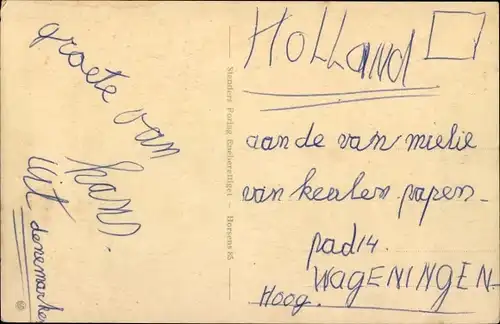 groete van
hans.
uit denemarken
Stenders Forlag Eneberettiget – Horsens 85
HOLLAND
aan de van mielie
van keulen papen-
pad 14.
WAGENINGEN-
Hoog.